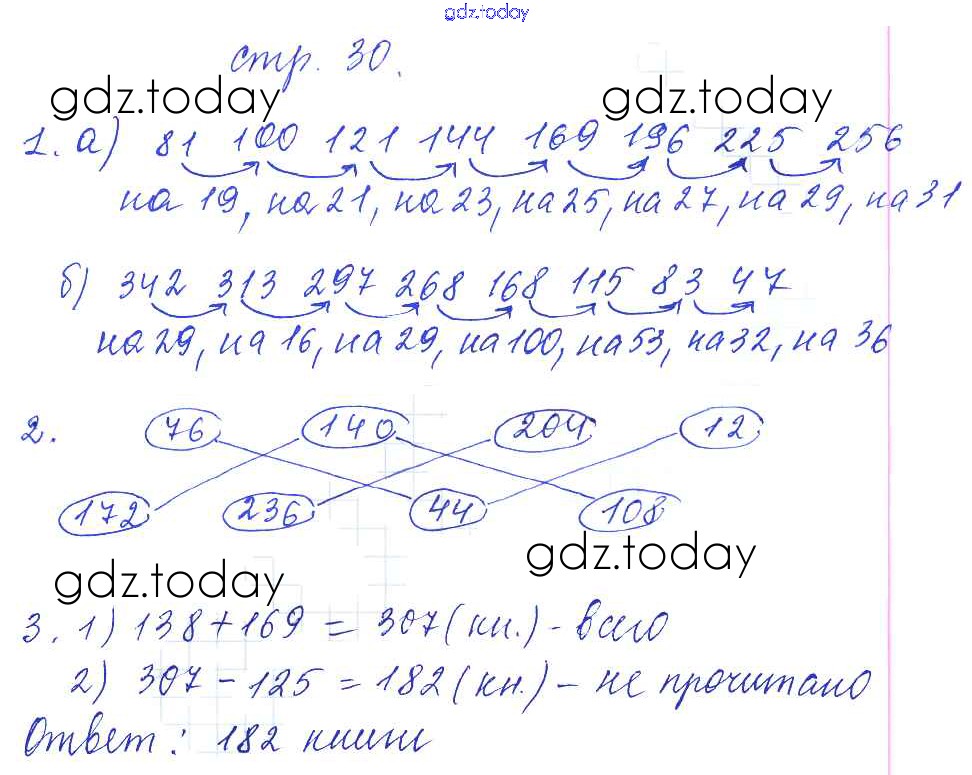 gdz.today
стр. 30.
gdz.today gdz.today
1. а) 81 100 121 144 169 196 225 256
на 19, на 21, на 23, на 25, на 27, на 29, на 31
б) 342 313 297 268 168 115 83 47
на 29, на 16, на 29, на 100, на 53, на 32, на 36
2. 76 140 204 12
172 236 44 108
gdz.today gdz.today
3. 1) 138 + 169 = 307 (кн.) - всего
2) 307 - 125 = 182 (кн.) - не прочитано
Ответ: 182 книги